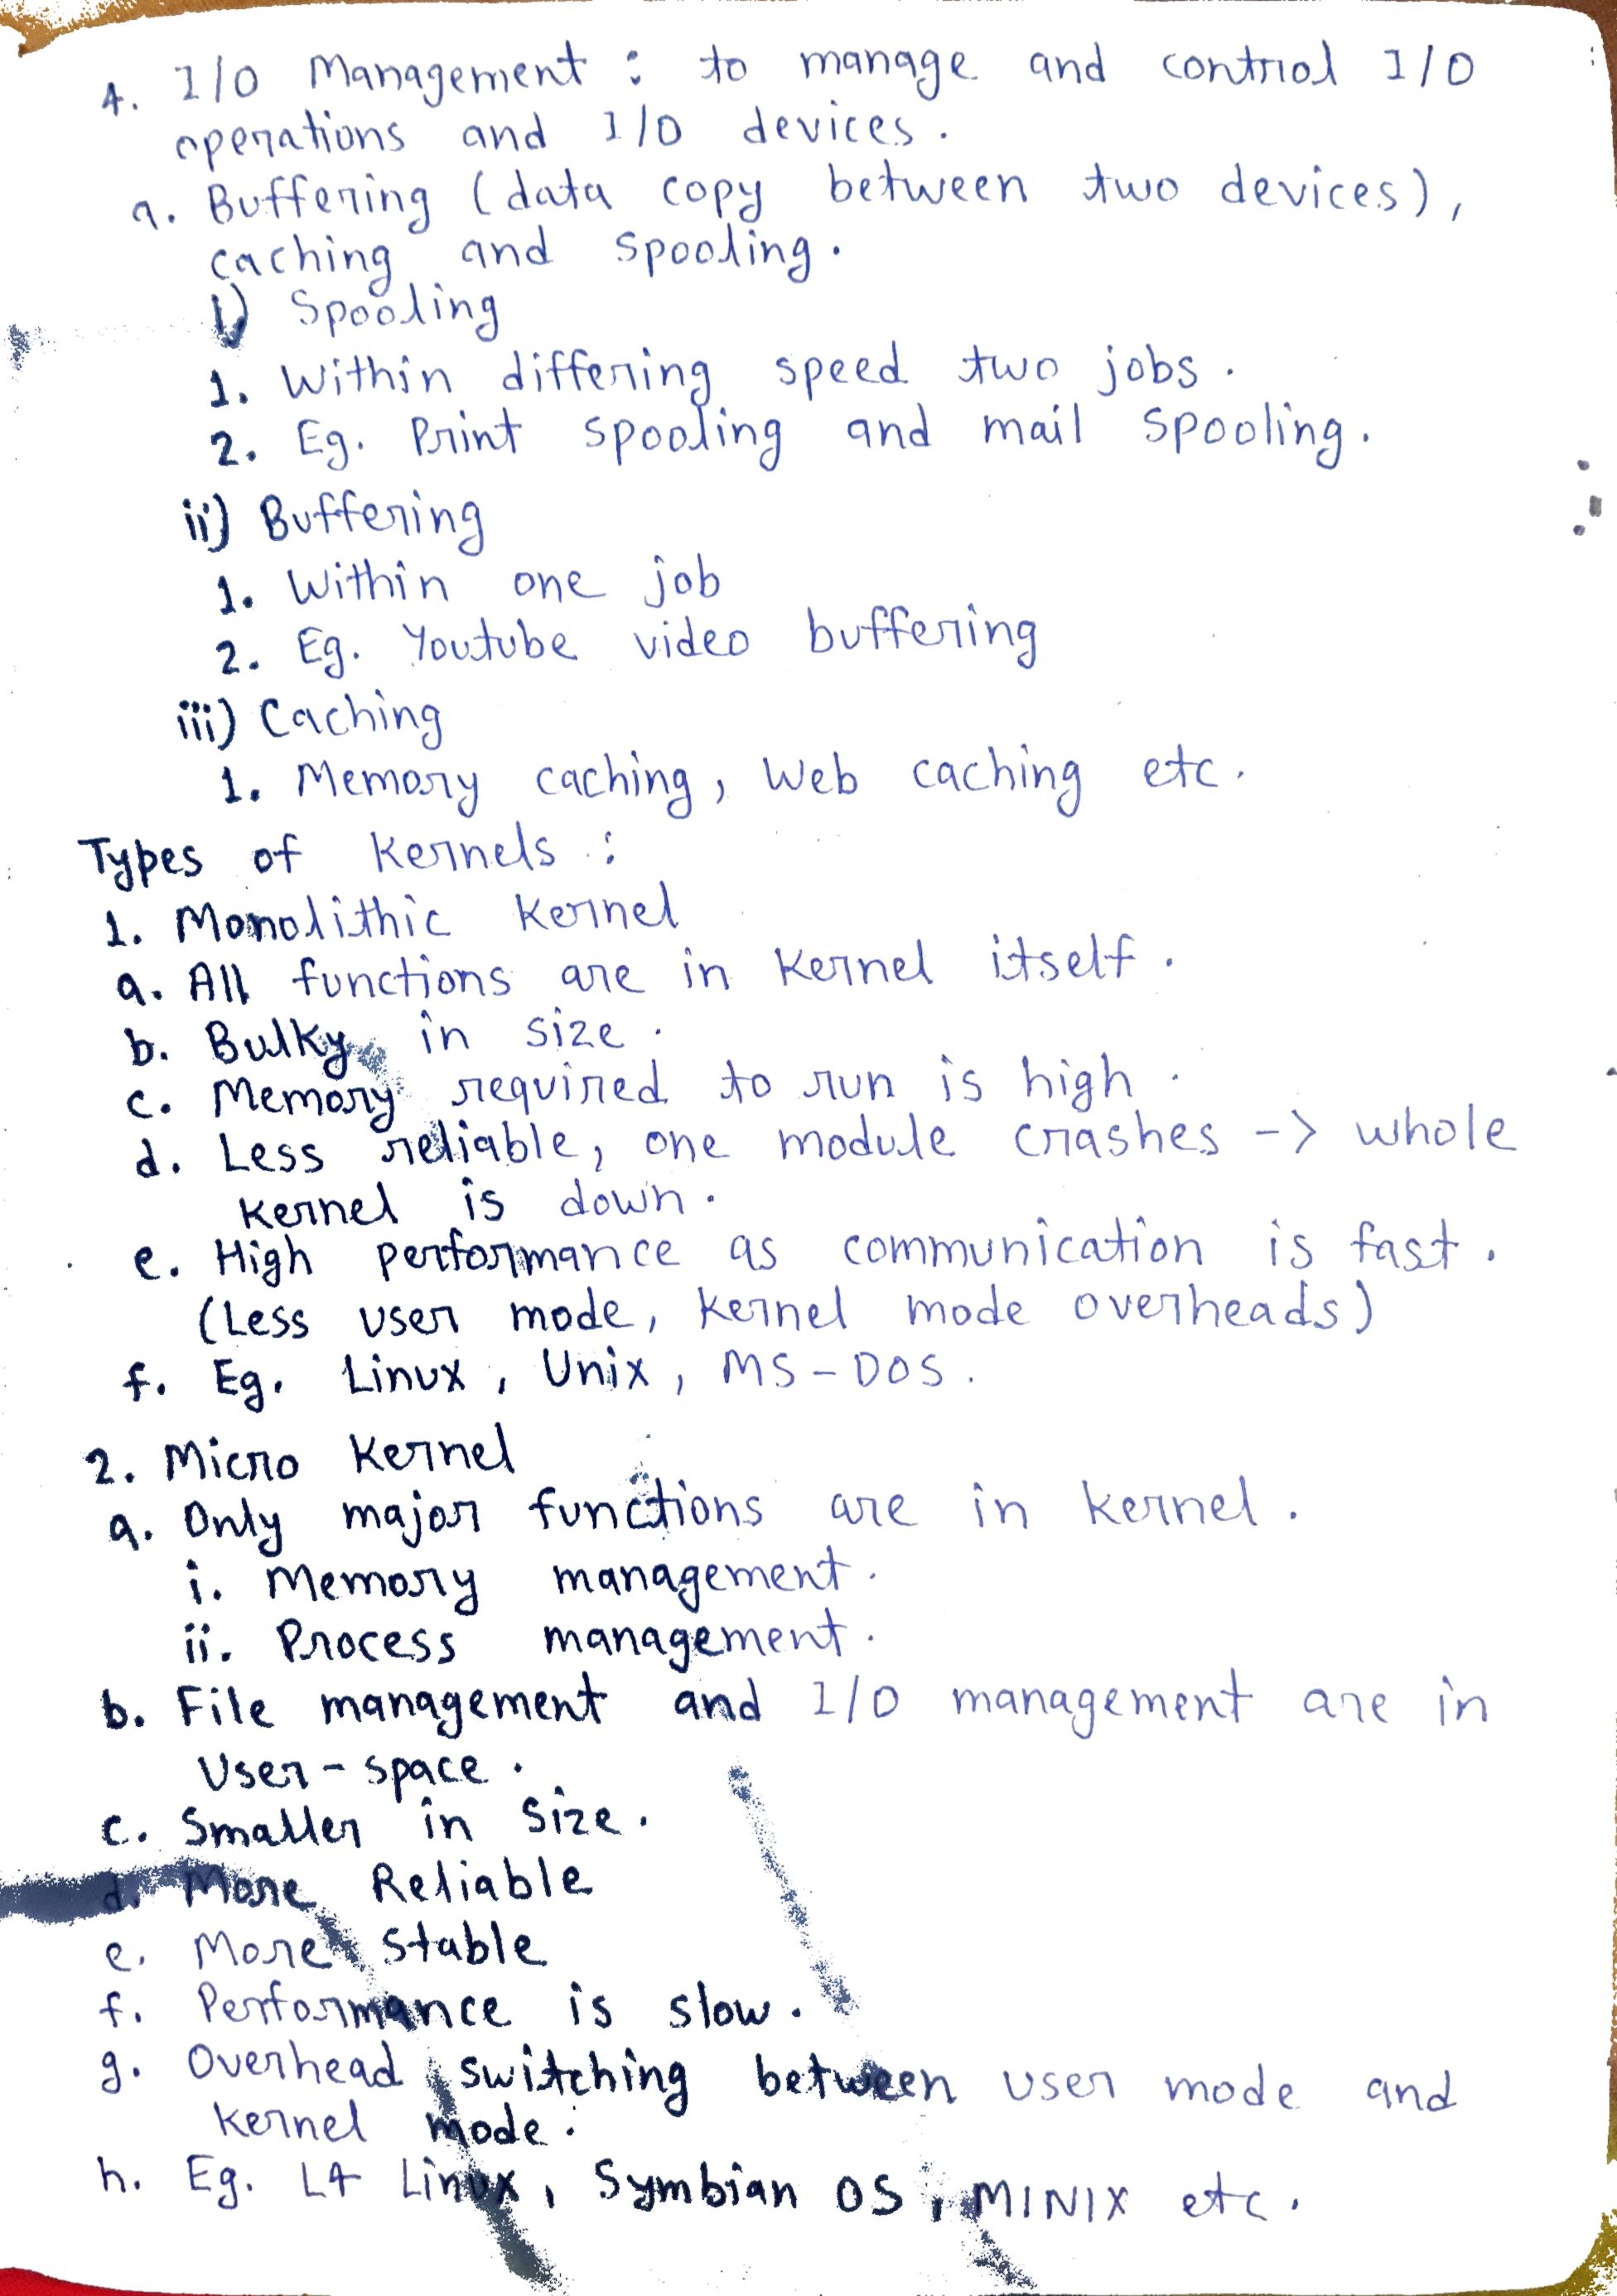 4. I/O Management : to manage and control I/O
operations and I/O devices.
a. Buffering (data copy between two devices),
caching and spooling.
i) Spooling
1. Within differing speed two jobs.
2. Eg. Print spooling and mail spooling.
ii) Buffering
1. Within one job
2. Eg. Youtube video buffering
iii) Caching
1. Memory caching, Web caching etc.
Types of Kernels :
1. Monolithic Kernel
a. All functions are in Kernel itself.
b. Bulky in size.
c. Memory required to run is high.
d. Less reliable, one module crashes -> whole
kernel is down.
e. High performance as communication is fast.
(Less user mode, kernel mode overheads)
f. Eg. Linux, Unix, MS-DOS.
2. Micro Kernel
a. Only major functions are in kernel.
i. Memory management.
ii. Process management.
b. File management and I/O management are in
User-space.
c. Smaller in size.
d. More Reliable
e. More stable
f. Performance is slow.
g. Overhead switching between user mode and
kernel mode.
h. Eg. L4 Linux, Symbian OS, MINIX etc.